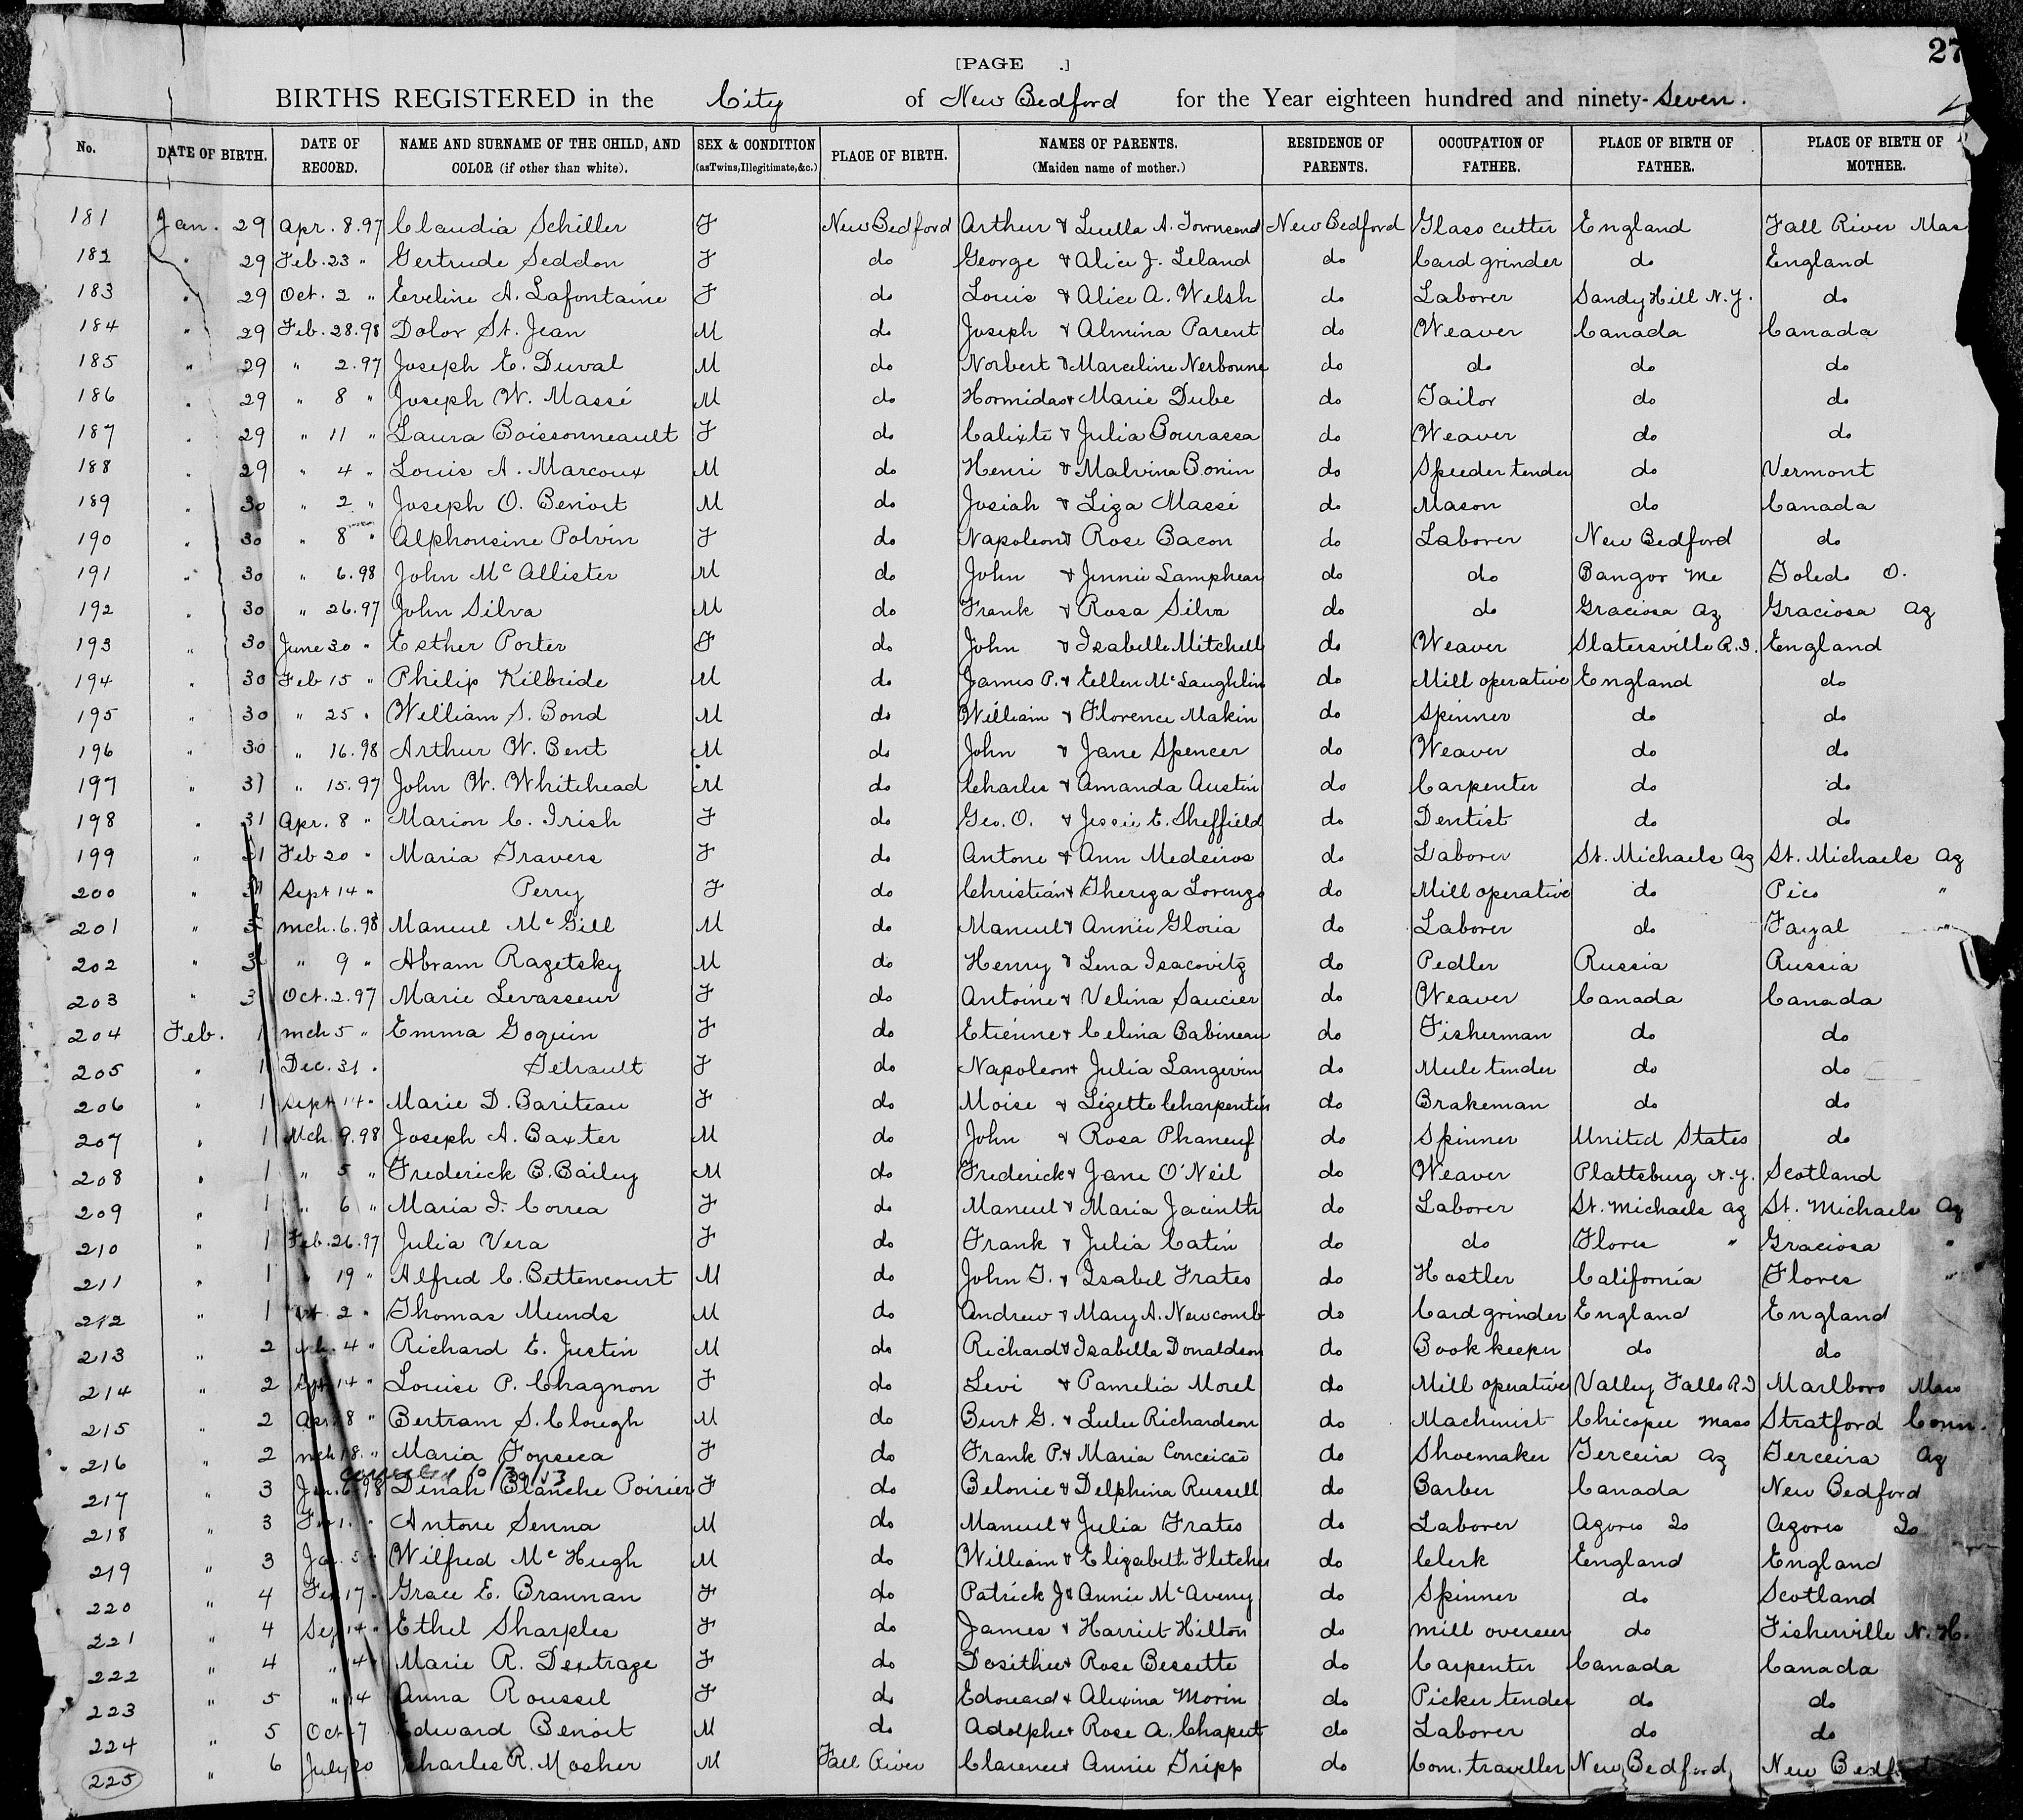 27
[PAGE .]
BIRTHS REGISTERED in the City of New Bedford for the Year eighteen hundred and ninety-Seven.
No. DATE OF BIRTH. DATE OF RECORD. NAME AND SURNAME OF THE CHILD, AND COLOR (if other than white). SEX & CONDITION (as Twins, Illegitimate, &c.) PLACE OF BIRTH. NAMES OF PARENTS. (Maiden name of mother.) RESIDENCE OF PARENTS. OCCUPATION OF FATHER. PLACE OF BIRTH OF FATHER. PLACE OF BIRTH OF MOTHER.
181 Jan. 29 Apr. 8.97 Claudia Schiller F New Bedford Arthur & Luella A. Townsend New Bedford Glass cutter England Fall River Mas
182 " 29 Feb. 23 " Gertrude Seddon F do George & Alice J. Leland do Card grinder do England
183 " 29 Oct. 2 " Eveline A. Lafontaine F do Louis & Alice A. Welsh do Laborer Sandy Hill N.Y. do
184 " 29 Feb. 28.98 Dolor St. Jean M do Joseph & Almina Parent do Weaver Canada Canada
185 " 29 " 2.97 Joseph E. Duval M do Norbert & Marceline Nerbonne do do do do
186 " 29 " 8 " Joseph W. Massé M do Hormidas & Marie Dube do Tailor do do
187 " 29 " 11 " Laura Boissonneault F do Calixte & Julia Bourassa do Weaver do do
188 " 29 " 4 " Louis A. Marcoux M do Henri & Malvina Bonin do Speeder tender do Vermont
189 " 30 " 2 " Joseph O. Benoit M do Josiah & Liza Massé do Mason do Canada
190 " 30 " 8 " Alphonsine Potvin F do Napoleon & Rose Bacon do Laborer New Bedford do
191 " 30 " 6.98 John McAllister M do John & Jennie Lamphear do do Bangor Me Toledo O.
192 " 30 " 26.97 John Silva M do Frank & Rosa Silva do do Graciosa Az Graciosa Az
193 " 30 June 30 " Esther Porter F do John & Isabelle Mitchell do Weaver Slatersville R.I. England
194 " 30 Feb 15 " Philip Kilbride M do James P. & Eellen McLaughlin do Mill operative England do
195 " 30 " 25 " William S. Bond M do William & Florence Makin do Spinner do do
196 " 30 " 16.98 Arthur W. Bent M do John & Jane Spencer do Weaver do do
197 " 31 " 15.97 John W. Whitehead M do Charles & Amanda Austin do Carpenter do do
198 " 31 Apr. 8 " Marion C. Irish F do Geo. O. & Jessie E. Sheffield do Dentist do do
199 " 31 Feb 20 " Maria Travers F do Antone & Ann Medeiros do Laborer St. Michaels Az St. Michaels Az
200 " 31 Sept 14 " Perry F do Christian & Thereza Lorenzo do Mill operative do Pico "
201 " 31 Mch. 6.98 Manuel McGill M do Manuel & Annie Gloria do Laborer do Fayal "
202 " 3 " 9 " Abram Razetsky M do Henry & Lena Isacovitz do Pedler Russia Russia
203 " 3 Oct. 2.97 Marie Levasseur F do Antoine & Velina Saucier do Weaver Canada Canada
204 Feb. 1 Mch 5 " Emma Goquin F do Etienne & Celina Babineau do Fisherman do do
205 " 1 Dec. 31 " Tetrault F do Napoleon & Julia Langevin do Mule tender do do
206 " 1 Sept 14 " Marie D. Bariteau F do Moise & Lizette Charpentier do Brakeman do do
207 " 1 Mch. 9.98 Joseph A. Baxter M do John & Rosa Phaneuf do Spinner United States do
208 " 1 " 5 " Frederick B. Bailey M do Frederick & Jane O'Neil do Weaver Plattsburg N.Y. Scotland
209 " 1 " 6 " Maria I. Correa F do Manuel & Maria Jacinth do Laborer St. Michaels Az St. Michaels Az
210 " 1 Feb. 26.97 Julia Vera F do Frank & Julia Catin do do Flores " Graciosa "
211 " 1 " 19 " Alfred C. Bettencourt M do John G. & Isabel Frates do Hostler California Flores "
212 " 1 2 " Thomas Munds M do Andrew & Mary A. Newcomb do Card grinder England England
213 " 2 4 " Richard E. Justin M do Richard & Isabella Donaldson do Book keeper do do
214 " 2 Sept 14 " Louise P. Chagnon F do Levi & Pamelia Morel do Mill operative Valley Falls R.I Marlboro Mass
215 " 2 Apr. 8 " Bertram S. Clough M do Burt G. & Lulu Richardson do Machinist Chicopee Mass Stratford Conn.
216 " 2 Mch 18. " Maria Fonseca F do Frank P. & Maria Conceicão do Shoemaker Terceira Az Terceira Az
corrected 10/30/53
217 " 3 Jan. 6.98 Dinah Blanche Poirier F do Belonie & Delphina Russell do Barber Canada New Bedford
218 " 3 Antone Senna M do Manuel & Julia Frates do Laborer Azores Is Azores Is
219 " 3 Wilfred McHugh M do William & Elizabeth Fletcher do Clerk England England
220 " 4 Feb 17 " Grace E. Brannan F do Patrick J & Annie McAveny do Spinner do Scotland
221 " 4 Sep 14 " Ethel Sharples F do James & Harriet Hilton do Mill overseer do Fisherville N.H.
222 " 4 " 14 " Marie R. Dextraze F do Dosithee & Rose Bessette do Carpenter Canada Canada
223 " 5 " 14 Anna Roussel F do Edouard & Alexina Morin do Picker tender do do
224 " 5 Oct 7 Edward Benoit M do Adolphe & Rose A. Chaput do Laborer do do
225 " 6 July 20 Charles R. Mosher M Fall River Clarence & Annie Tripp do Com. traveller New Bedford New Bedford